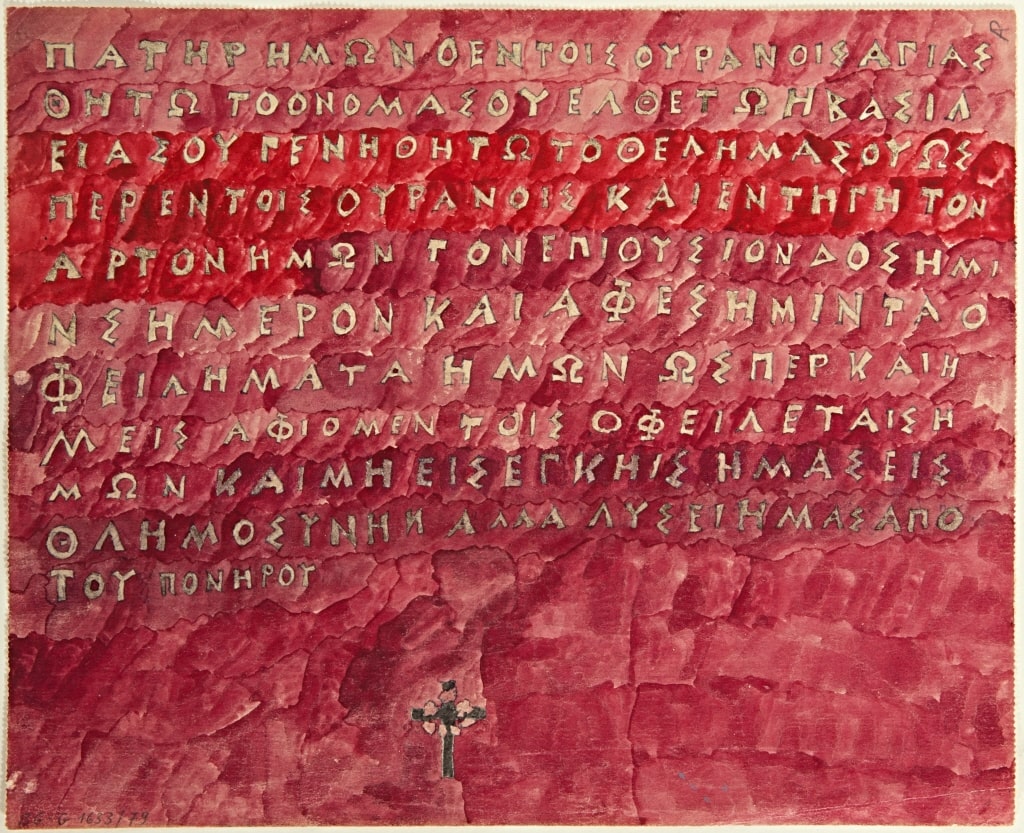 ΠΑΤΗΡ ΗΜΩΝ Ο ΕΝ ΤΟΙΣ ΟΥΡΑΝΟΙΣ ΑΓΙΑΣ
ΘΗΤΩ ΤΟ ΟΝΟΜΑ ΣΟΥ ΕΛΘΕΤΩ Η ΒΑΣΙΛ
ΕΙΑ ΣΟΥ ΓΕΝΗΘΗΤΩ ΤΟ ΘΕΛΗΜΑ ΣΟΥ ΩΣ
ΠΕΡ ΕΝ ΤΟΙΣ ΟΥΡΑΝΟΙΣ ΚΑΙ ΕΝ ΤΗ ΓΗ ΤΟΝ
ΑΡΤΟΝ ΗΜΩΝ ΤΟΝ ΕΠΙΟΥΣΙΟΝ ΔΟΣ ΗΜΙ
Ν ΣΗΜΕΡΟΝ ΚΑΙ ΑΦΕΣ ΗΜΙΝ ΤΑ Ο
ΦΕΙΛΗΜΑΤΑ ΗΜΩΝ ΩΣΠΕΡ ΚΑΙ Η
ΜΕΙΣ ΑΦΙΟΜΕΝ ΤΟΙΣ ΟΦΕΙΛΕΤΑΙΣ Η
ΜΩΝ ΚΑΙ ΜΗ ΕΙΣΕΓΚΗΙΣ ΗΜΑΣ ΕΙΣ
ΘΛΗΜΟΣΥΝΗΝ ΑΛΛΑ ΛΥΣΕΙ ΗΜΑΣ ΑΠΟ
ΤΟΥ ΠΟΝΗΡΟΥ
1633/79